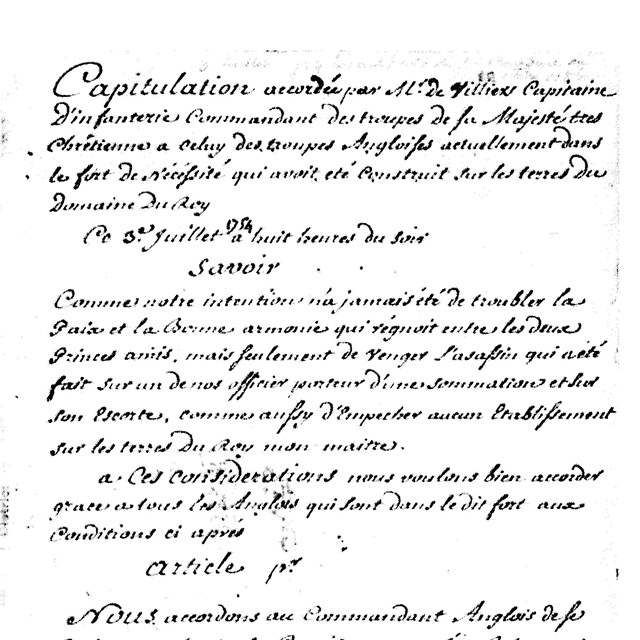 Capitulation accordée par Mr. de Villiers Capitaine
D'infanterie Commandant des troupes de sa Majesté tres
Chrêtienne a celuy des troupes Angloises actuellement dans
le fort de Nécéssité qui avoit été Construit sur les terres du
Domaine Du Roy
Ce 3e. Juillet 1754 a huit heures du soir
Savoir
Comme notre intention n'a jamais été de troubler la
Paix et la Bonne armonie qui régnoit entre les deux
Princes amis, mais seulement de venger L'asassin qui a été
fait sur un de nos officier porteur d'une sommation et sur
son Escorte, comme aussy d'Empecher aucun Etablissement
sur les terres Du Roy mon maitre.
a Ces considerations nous voulons bien accorder
grace a tous les Anglois qui sont dans le dit fort aux
Conditions ci aprés
Article pr.
Nous accordons au Commandant Anglois de se